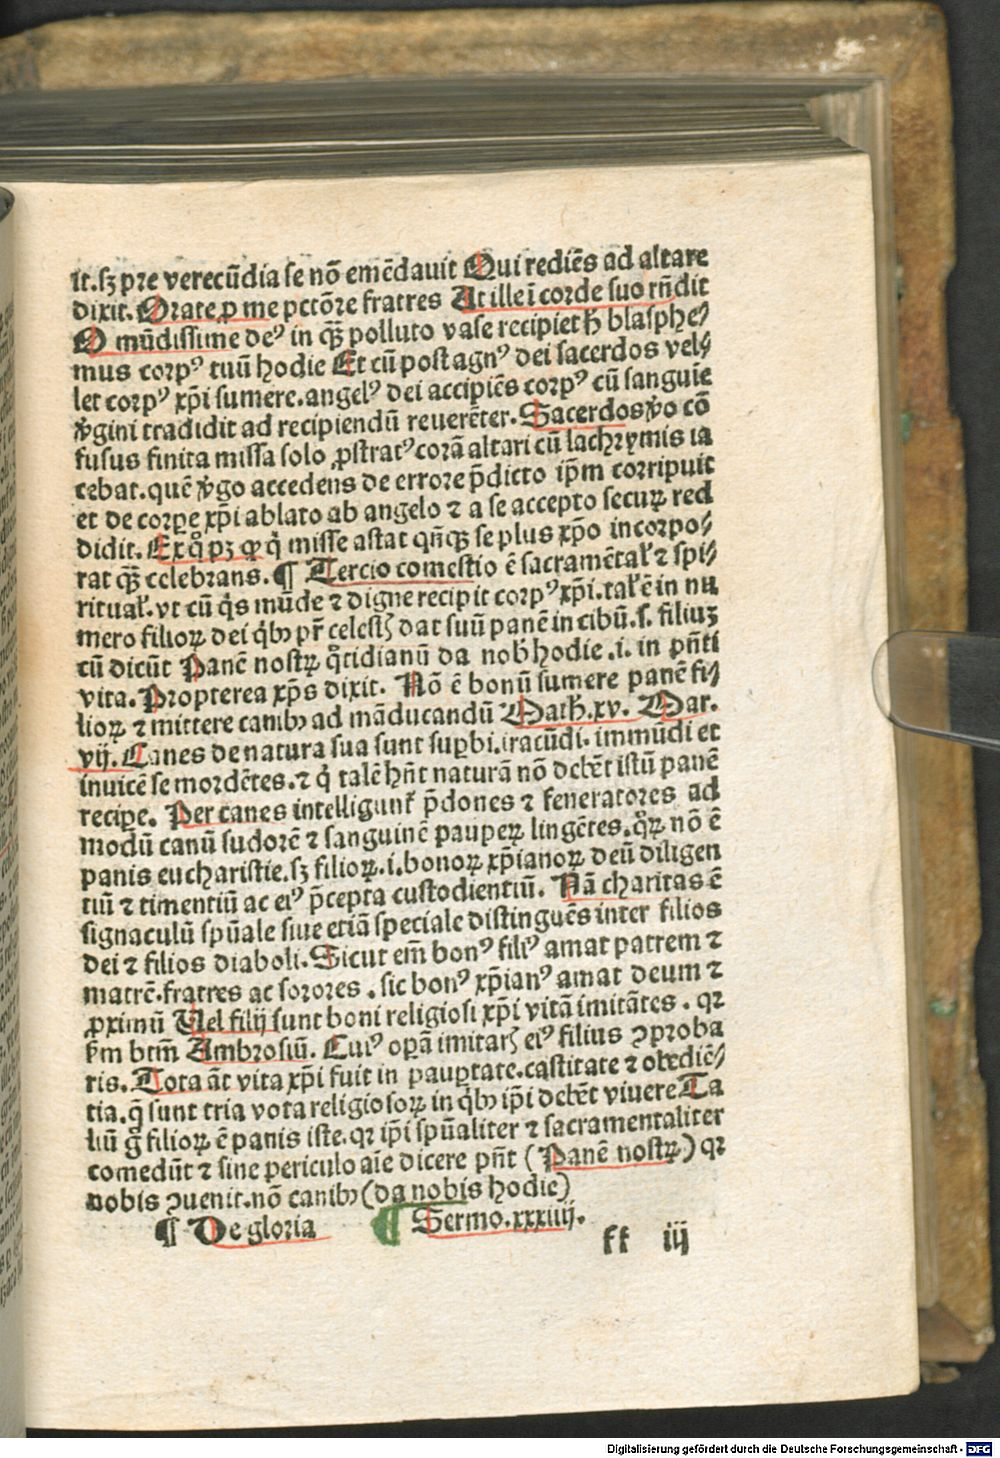 it. sꝫ pre verecūdia se nō emēdauit Qui rediēs ad altare
dixit. Orate ꝓ me pctōre fratres At ille ī corde suo rn̄dit
O mūdissime deꝰ in qꝫ̄ polluto vase recipiet h̄ blasphe⸗
mus corpꝰ tuū hodie Et cū post agnꝰ dei sacerdos vel⸗
let corpꝰ xp̄i sumere. angelꝰ dei accipiēs corpꝰ cū sanguīe
v̓gini tradidit ad recipiendū reuerēter. Sacerdos v̓o cō
fusus finita missa solo ꝓstratꝰ corā altari cū lachrymis ia
cebat. quē v̓go accedens de errore p̄dicto ip̄m corripuit
et de corꝑe xp̄i ablato ab angelo ⁊ a se accepto secuꝝ red
didit. Ex q̊ pꝫ ꝙ q̇ misse astat qn̄qꝫ se plus xp̄o incorpo⸗
rat qꝫ̄ celebrans. ¶ Tercio comestio ē sacramētal̓ ⁊ spi⸗
ritual̓. vt cū q̇s mūde ⁊ digne recipit corpꝰ xp̄i. tal̓ ē in nu
mero filioꝝ dei q̇bꝰ pr̄ celestꝭ dat suū panē in cibū. s. filiuꝫ
cū dicūt Panē nostꝝ q̊tidianū da nob̄ hodie .i. in pn̄ti
vita. Propterea xp̄s dixit. Nō ē bonū sumere panē fi⸗
lioꝝ ⁊ mittere canibꝰ ad māducandū Math̄. xv. Mar.
vij. Canes de natura sua sunt suꝑbi. iracūdi. immūdi et
inuicē se mordētes. ⁊ q̇ talē hn̄t naturā nō debēt istū panē
reciꝑe. Per canes intelligunt̓ p̄dones ⁊ feneratores ad
modū canū sudorē ⁊ sanguinē pauꝑeꝝ lingētes. q̊ꝝ nō ē
panis eucharistie. sꝫ filioꝝ .i. bonoꝝ xp̄ianoꝝ deū diligen
tiū ⁊ timentiū ac eiꝰ p̄cepta custodientiū. Nā charitas ē
signaculū spūale siue etiā speciale distinguēs inter filios
dei ⁊ filios diaboli. Sicut em̄ bonꝰ filiꝰ amat patrem ⁊
matrē. fratres ac sorores . sic bonꝰ xp̄ianꝰ amat deum ⁊
ꝓximū Uel filij sunt boni religiosi xp̄i vitā imitātes . qꝛ
k̄m btm̄ Ambrosiū. Cuiꝰ oꝑa imitarꝭ eiꝰ filius ꝯproba
ris. Tota āt vita xp̄i fuit in pauꝑtate. castitate ⁊ obediē⸗
tia. q̄ sunt tria vota religiosoꝝ in q̇bꝰ ip̄i debēt viuere Ta
liū g̊ filioꝝ ē panis iste. qꝛ ip̄i spūaliter ⁊ sacramentaliter
comedūt ⁊ sine periculo aīe dicere pn̄t (Panē nostꝝ) qꝛ
nobis ꝯuenit. nō canibꝰ (da nobis hodie)
¶ De gloria ¶ Sermo. xxxiiij.
ff iij
Digitalisierung gefördert durch die Deutsche Forschungsgemeinschaft - DFG